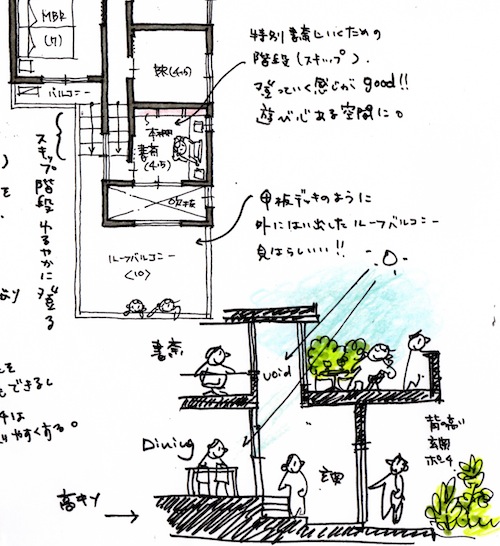 MBR
(7)
バルコニー
(4.5)
本棚
書斎
(4.5)
吹抜
ルーフバルコニー
<10>
スキップ階段ゆるやかに登る
特別書斎にいくための
階段(スキップ)。
登っていく感じがgood!!
遊べ心ある空間に。
甲板デッキのように
外にはい出したルーフバルコニー
見はらしいい!!
を
できるし
は
やすくする。
書斎
void
Dining
玄関
背の高い
玄関
ポーチ